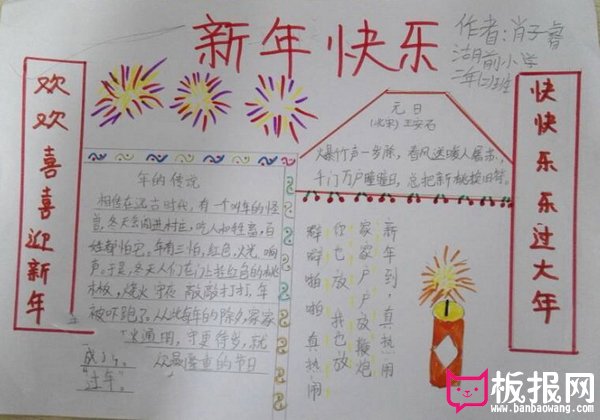 新年快乐
作者:肖子睿
湖前小学
二年(2)班
欢欢喜喜迎新年
快快乐乐过大年
元日
(北宋)王安石
爆竹声一岁除,春风送暖入屠苏,
千门万户瞳瞳日,总把新桃换旧符。
年的传说
相传在远古时代,有一个叫年的怪
兽,冬天会闯进村庄,吃人和牲畜,百
姓都怕它。年有三怕,红色,火光,响
声。于是,冬天人们在门上挂红色的桃
木板,烧火
敲敲打打,年
被吓跑了。从此每年的除夕,家家
火通明,守更待岁,就
成了
众最隆重的节日
"过年"。
新年到,真热闹
家家户户放鞭炮
你也放,我也放
噼噼啪啪真热闹
板报网
www.banbaowang.com